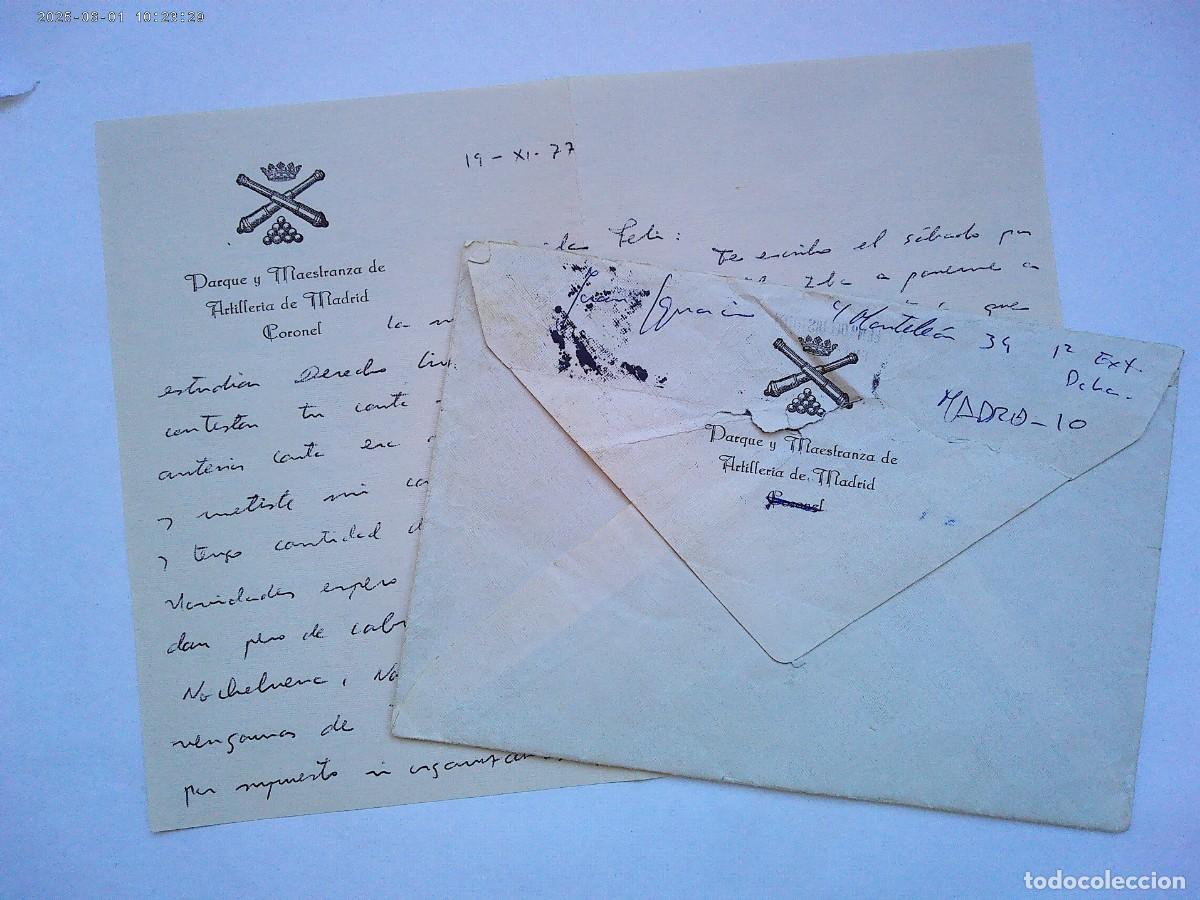 2025-08-01 10:23:29
19-XI-77
Parque y Maestranza de
Artillería de Madrid
Coronel
Te escribo el sábado por
a ponerme a
que
la
estudiar Derecho
contestar tu carta
anterior carta
y metiste mi
y tengo cantidad
Navidades espero
dan pero de
Nochebuena, No
vengamos de
por supuesto si
Juan Ignacio
Monteleón 39 1º Ext.
Dcha.
MADRID-10
Parque y Maestranza de
Artillería de Madrid
Coronel
todocoleccion